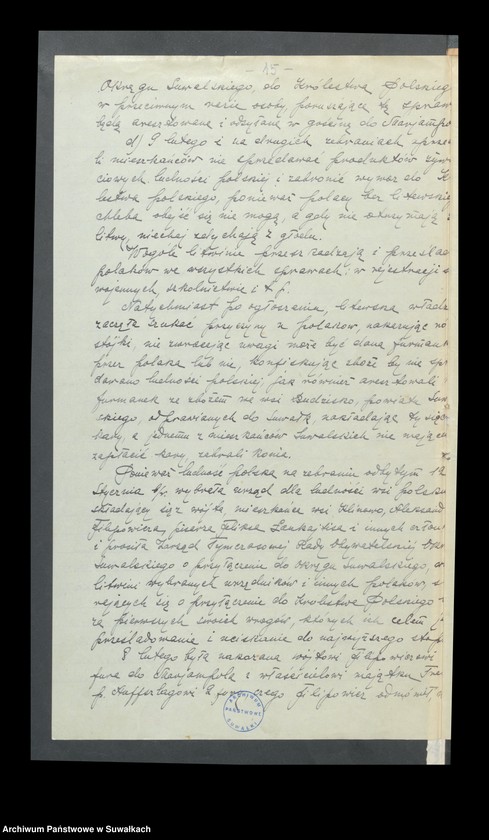 - 15 -
Okręgu Suwalskiego, do Królestwa Polskieg
w przeciwnym razie osoby, poruszające tę spraw
będą aresztowane i odsyłane w gościnę do Marjampo
d) 9 lutego i na drugich zebraniach
li mieszkańców nie sprzedawać produktów żyw
ciowych ludności polskiej i zabronić wywoz do K
lestwa polskiego, ponieważ polacy bez litewskieg
chleba obejść się nie mogą, a gdy nie otrzymają z
litwy, niechaj zdychają z głodu.
Wogóle litwini przeszkadzają i prześlad
polaków we wszystkich sprawach: w rejestracji s
wojennych, szkolnictwie i t.p.
Natychmiast po ogłoszeniu, litewska władza
zaczęła szukać przyczyny z polaków, nakazując
stójki, nie zwracając uwagi może być dana furmank
przez polaka lub nie, konfiskując zboże by nie spr
dawano ludności polskiej, jak również aresztowali
furmanek ze zbożem we wsi Budzisko, powiatu Suw
skiego, odprawianych do Suwałk, nakładając
kary, a jednemu z mieszkańców Suwalskich nie mające
zapłacić kary, zabrali konia.
Ponieważ ludność polska na zebraniu odbytym 12
Stycznia b/r. wybrała urząd dla ludności wsi polski
składający się z wójta, mieszkańca wsi Klinowo, Aleksand
Filipowicza, pisarza Feliksa i innych
i prosiła Zarząd Tymczasowej Rady Obywatelskiej Okr
Suwalskiego o przyłączenie do Okręgu Suwalskiego,
litwini wybranych urzędników i innych polaków, s
rających się o przyłączenie do Królestwa Polskiego
za pierwszych swoich wrogów, których na celu
prześladowanie i uciskanie do najwyższego stop
8 lutego była nakazana wójtowi Filipowiczowi
fura do Marjampola z właścicielowi majątku
p. Hafferlagowi. Filipowicz odmówił
ARCHIWUM
PAŃSTWOWE
SUWAŁKI
Archiwum Państwowe w Suwałkach